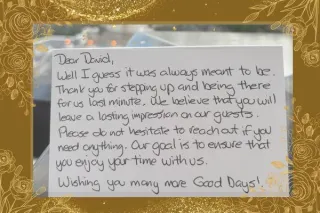 Dear David,
Well I guess it was always meant to be.
Thank you for stepping up and being there
for us last minute. We believe that you will
leave a lasting impression on our guests.
Please do not hesitate to reach out if you
need anything. Our goal is to ensure that
you enjoy your time with us.
Wishing you many more Good Days!